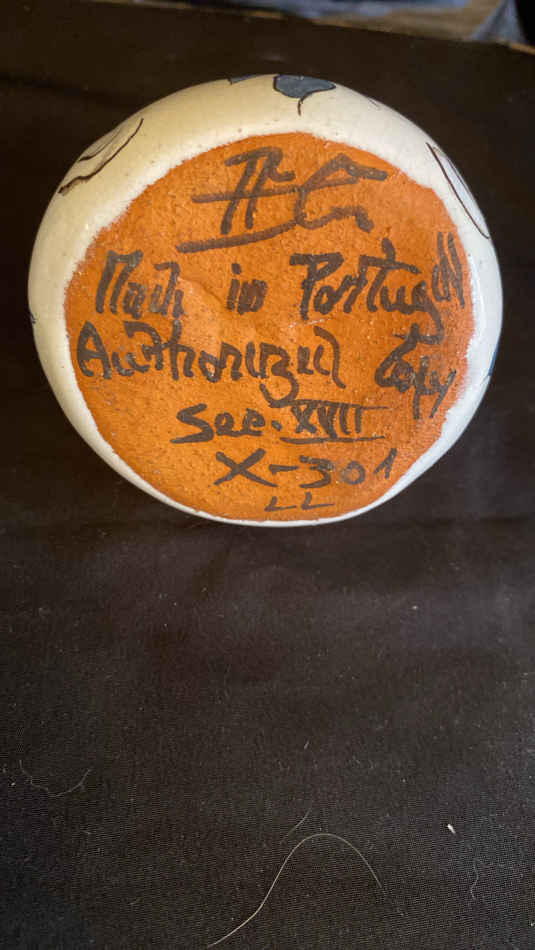 Made in Portugal
Authorized Copy
Sec. XVII
X-301
LL